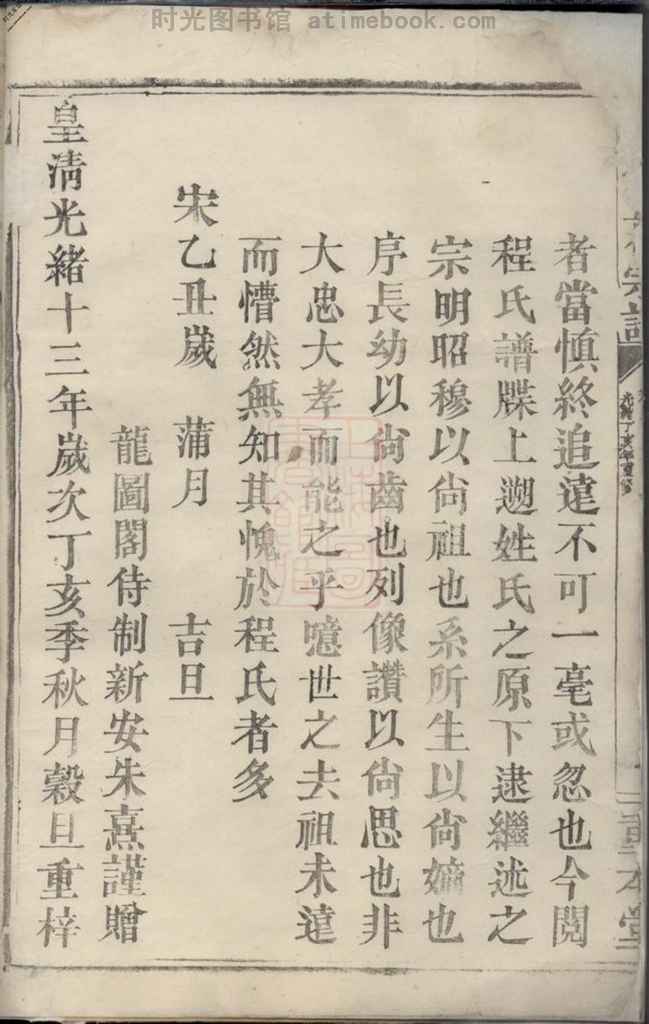 时光图书馆 atimebook.com
者當慎終追遠不可一毫或忽也今閱
程氏譜牒上遡姓氏之原下逮繼述之
宗明昭穆以尙祖也系所生以尙嫡也
序長幼以尙齒也列像讚以尙思也非
大忠大孝而能之乎噫世之去祖未遠
而懵然無知其愧於程氏者多
宋乙丑歲 蒲月 吉旦
龍圖閣侍制新安朱熹謹贈
皇淸光緒十三年歲次丁亥季秋月穀旦重梓